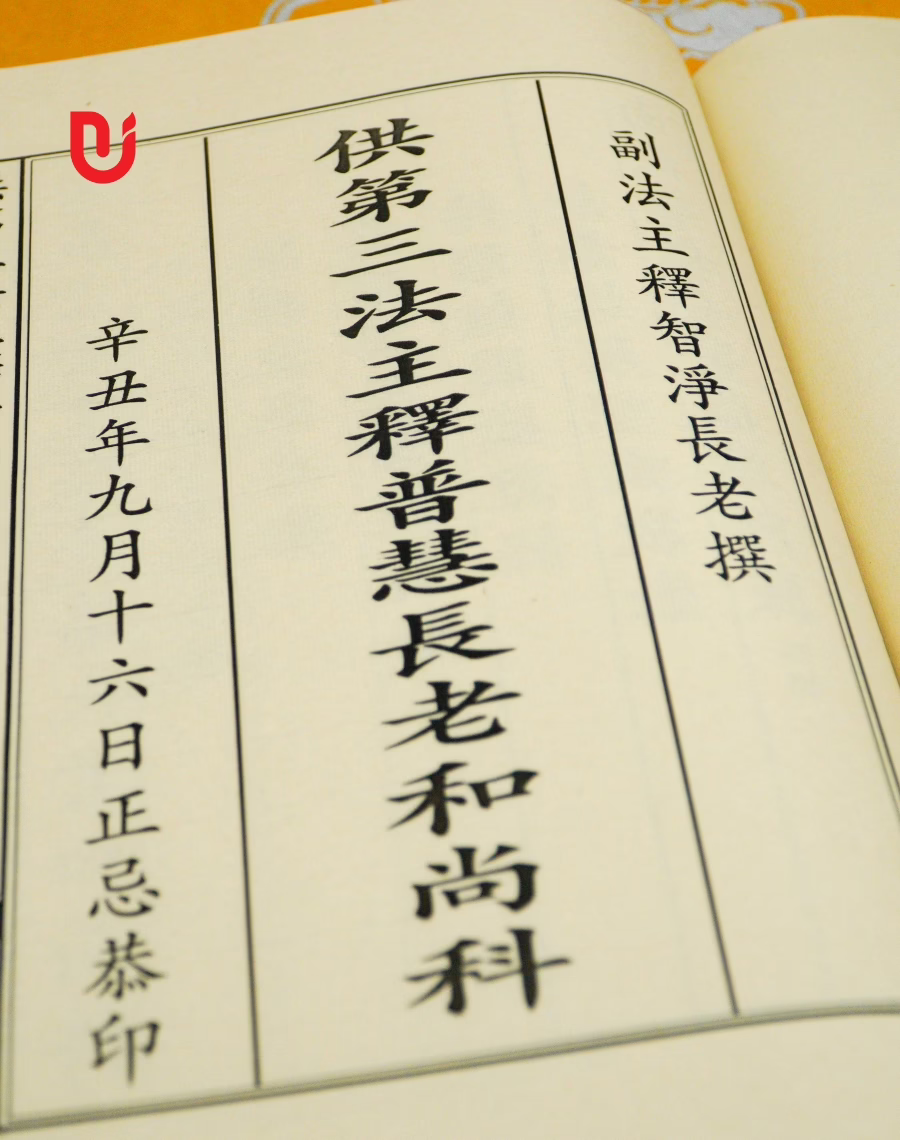 副法主釋智淨長老撰
供第三法主釋普慧長老和尚科
辛丑年九月十六日正忌恭印